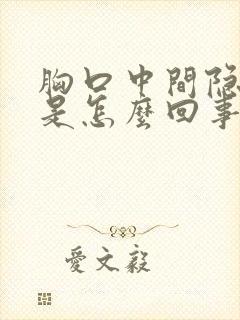 胸口中間隐
是怎麼回事
愛文毅